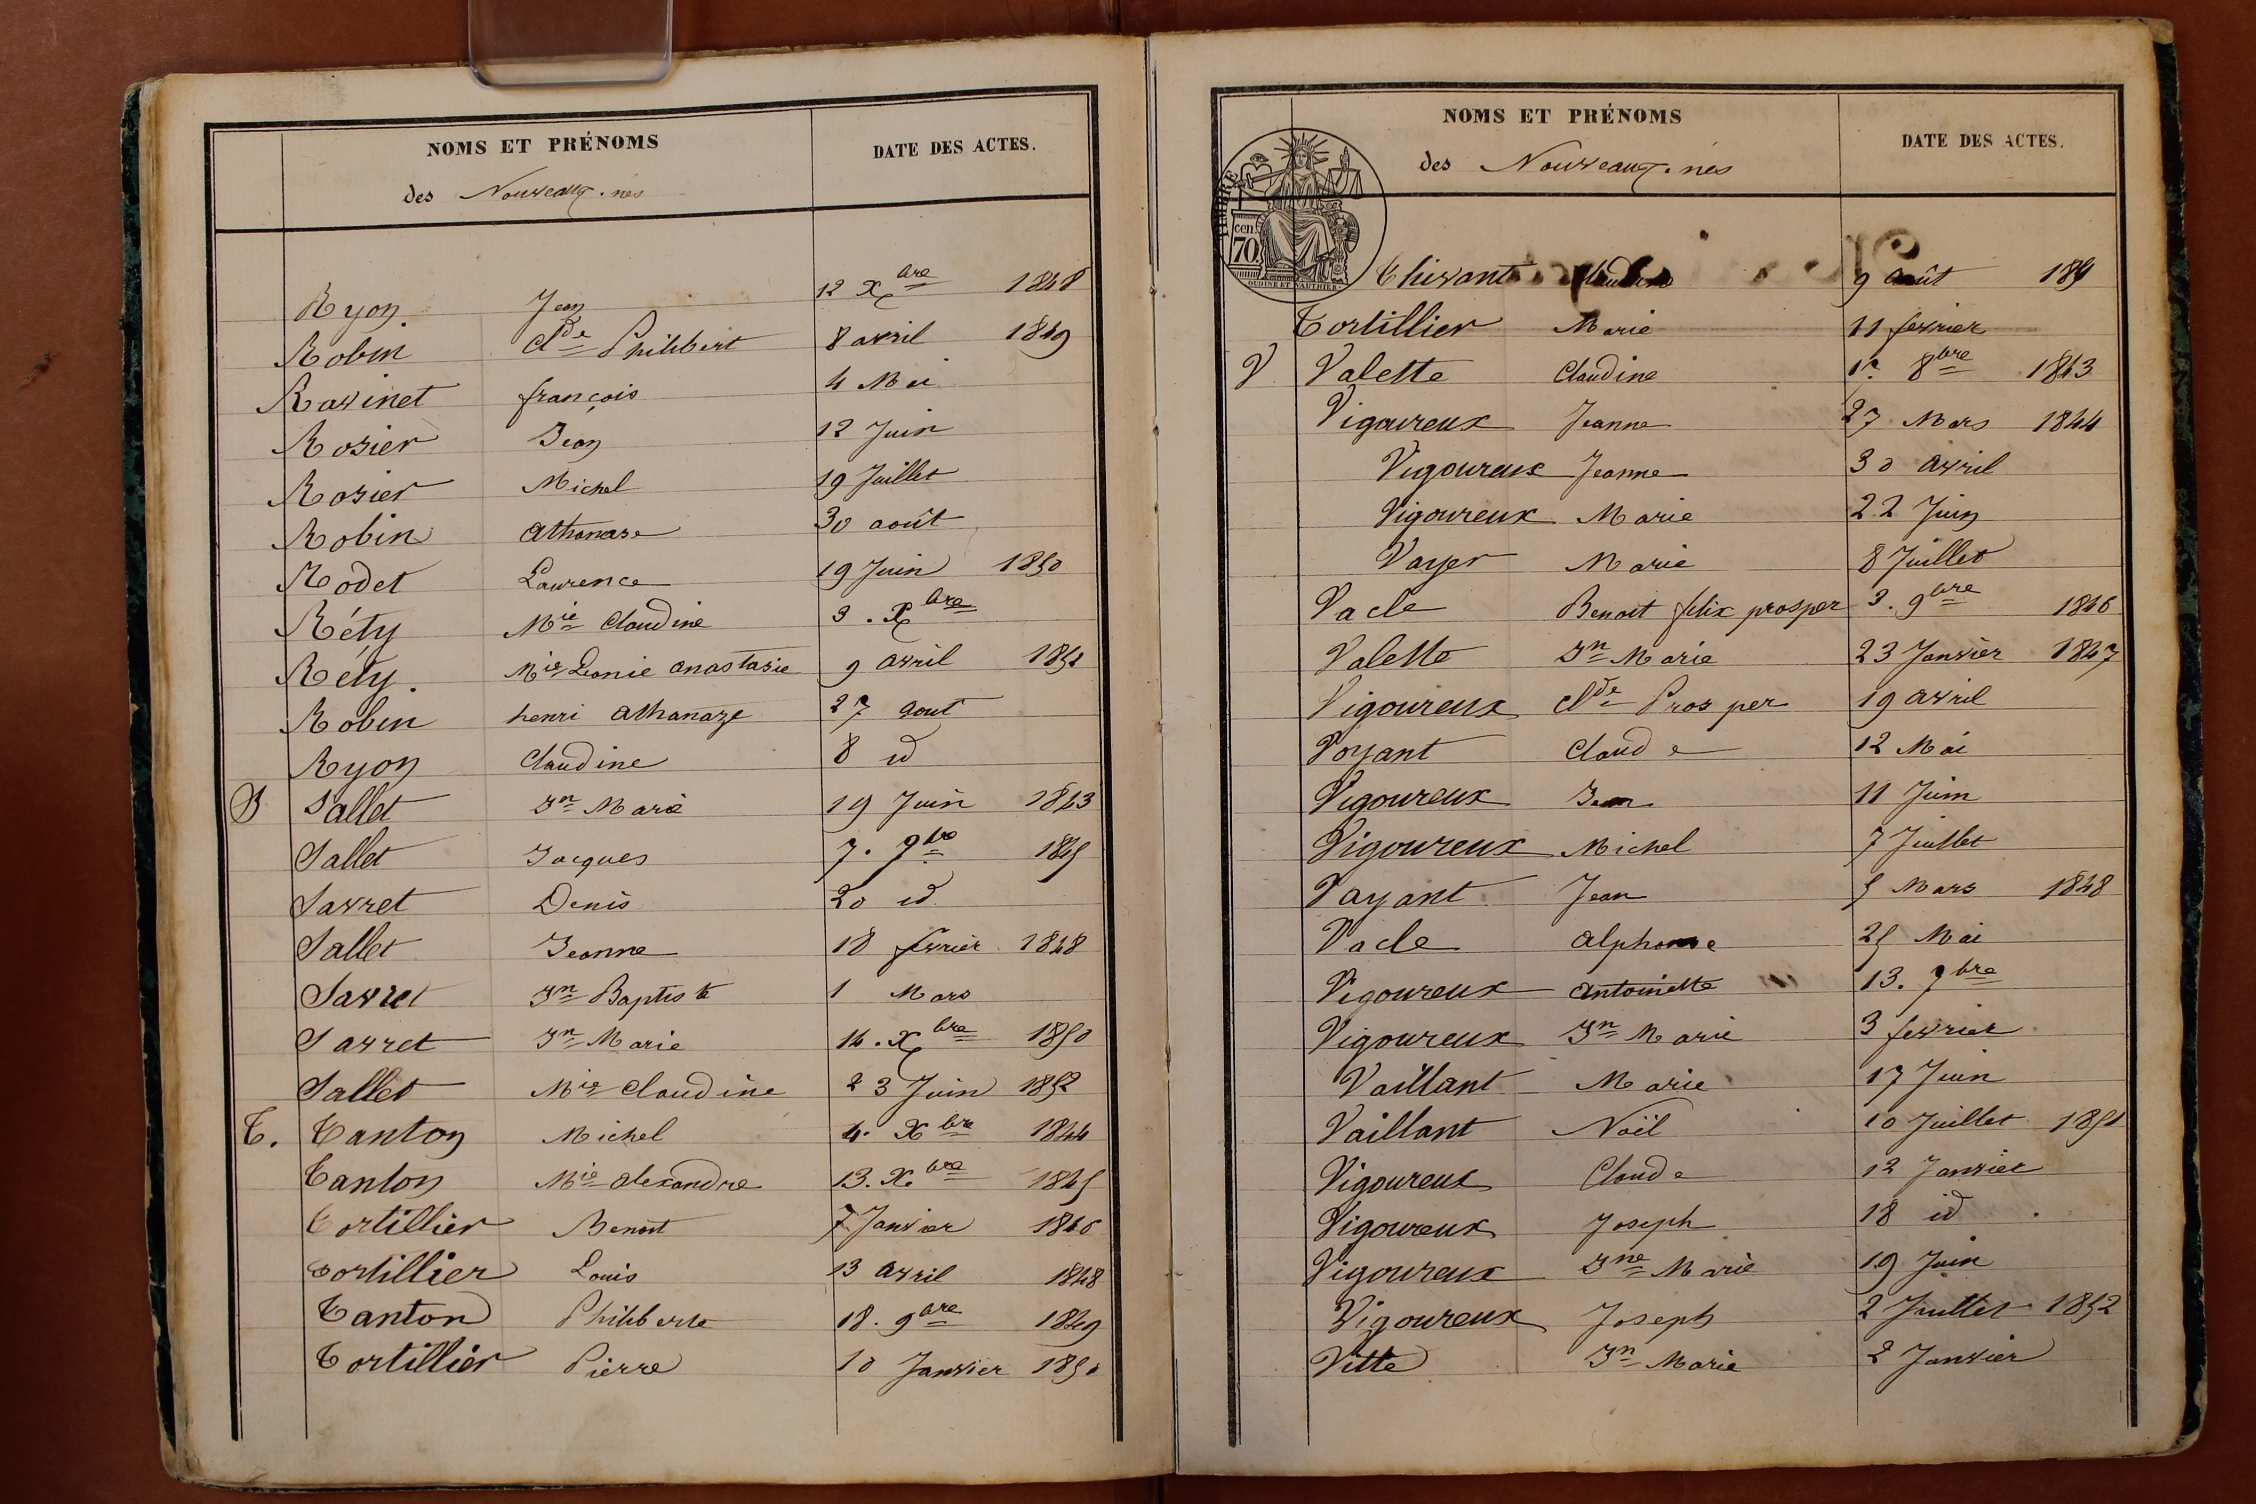 NOMS ET PRÉNOMS DATE DES ACTES.
des Nouveaux-nés
Ryon Jean 12 Xbre 1848
Robin Clde Philibert 8 avril 1849
Ravinet françois 4 Mai
Rosier Jean 12 Juin
Rosier Michel 19 Juillet
Robin athanase 30 août
Rodet Laurence 19 Juin 1850
Réty Mie Claudine 3. Xbre
Réty. Mie Leonie anastasie 9 avril 1851
Robin henri athanaze 27 aout
Ryon Claudine 8 id
S Sallet Jn Marie 19 Juin 1843
Sallet Jacques 7. 9bre 1845
Savret Denis 20 id
Sallet Jeanne 18 fevrier 1848
Savret Jn Baptiste 1 Mars
Savret Jn Marie 14. Xbre 1850
Sallet Mie Claudine 23 Juin 1852
T. Tanton Michel 4. Xbre 1844
Tanton Mie alexandre 13. Xbre 1845
Tortillier Benoit 7 Janvier 1846
Tortillier Louis 13 avril 1848
Tanton Philiberte 18. 9bre 1849
Tortillier Pierre 10 Janvier 1850
NOMS ET PRÉNOMS DATE DES ACTES.
des Nouveaux-nés
TIMBRE
cen.
70
OUDINE ET VAUTHIER
Thivant 9 août
Tortillier Marie 11 fevrier
V Valette Claudine 17. 8bre 1843
Vigoureux Jeanne 27 Mars 1844
Vigoureux Jeanne 30 avril
Vigoureux Marie 22 Juin
Vayer Marie 8 Juillet
Vacle Benoit felix prosper 3. 9bre 1846
Valette Jn Marie 23 Janvier 1847
Vigoureux Clde Prosper 19 avril
Voyant Claude 12 Mai
Vigoureux Jean 11 Juin
Vigoureux Michel 7 Juillet
Vayant Jean 5 Mars 1848
Vacle alphonse 25 Mai
Vigoureux antoinette 13. 7bre
Vigoureux Jn Marie 3 fevrier
Vaillant Marie 17 Juin
Vaillant Noël 10 Juillet 1851
Vigoureux Claude 12 Janvier
Vigoureux Joseph 18 id
Vigoureux Jne Marie 19 Juin
Vigoureux Joseph 2 Juillet 1852
Vitte Jn Marie 2 Janvier